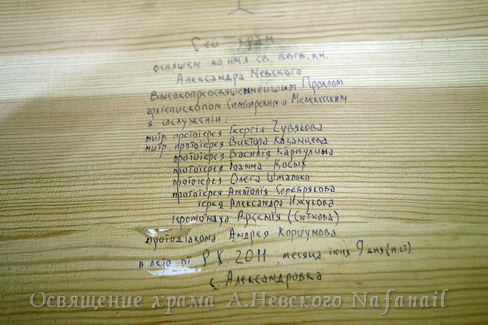 Сей храм
освящен во имя св. благв. кн.
Александра Невского
Высокопреосвященнейшим Проклом
архиепископом Симбирским и Мелекесским
в сослужении:
митр. протоиерея Георгия Чувякова
митр. протоиерея Виктора Казанцева
протоиерея Василия Карпулина
протоиерея Иоанна Косых
протоиерея Олега
протоиерея Анатолия Серебрякова
иерея Александра Ижукова
иеромонаха Арсения
протодиакона Андрея Коршунова
в лето от РХ 2011, месяца 9 дня (н.ст)
с. Александровка
Освящение храма А.Невского Nafanail